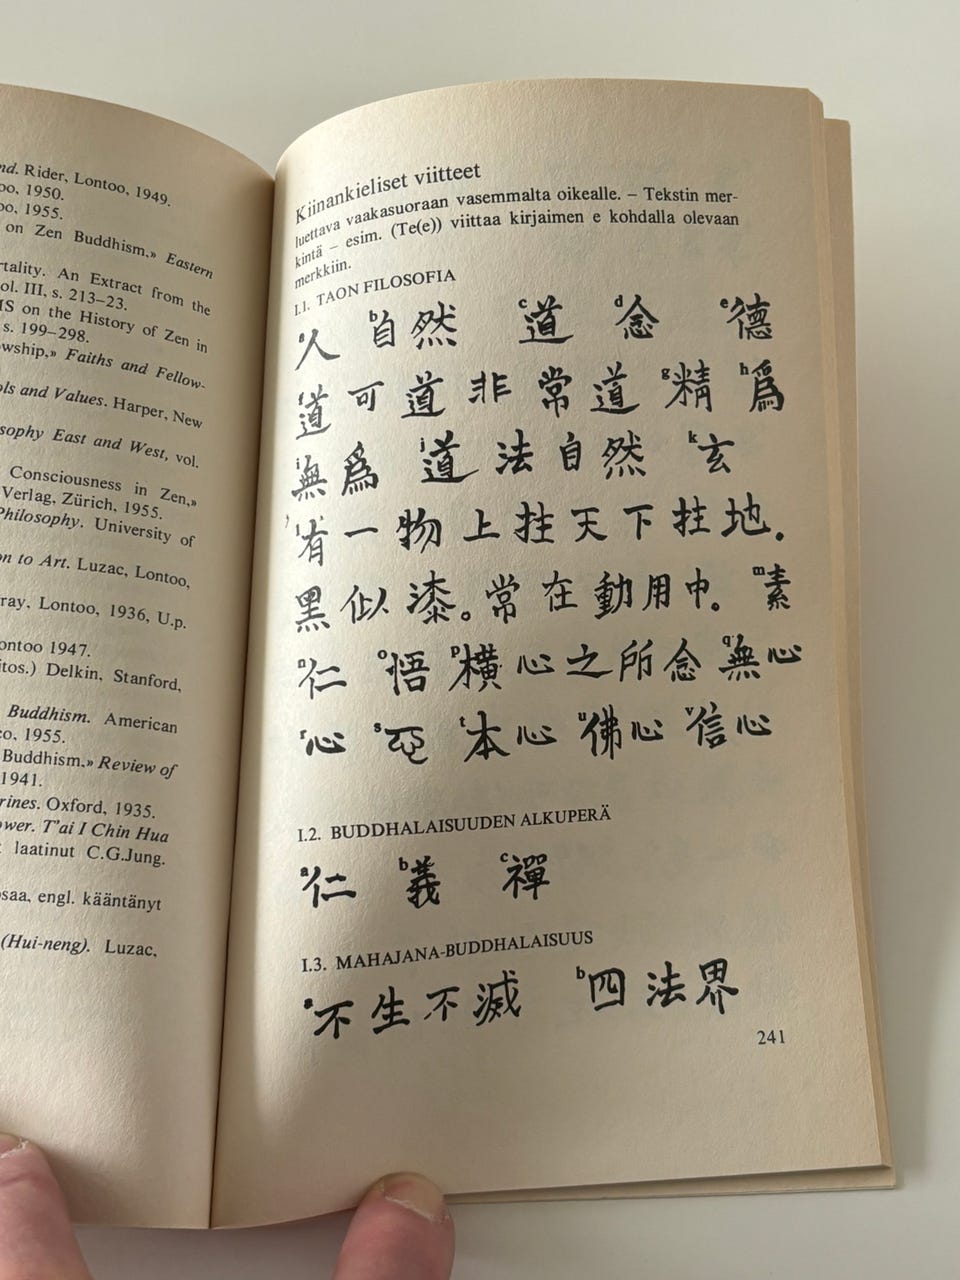 nd. Rider, Lontoo, 1949.
oo, 1950.
oo, 1955.
on Zen Buddhism,» Eastern
rtality. An Extract from the
ol. III, s. 213–23.
IS on the History of Zen in
s. 199–298.
owship,» Faiths and Fellow-
ols and Values. Harper, New
sophy East and West, vol.
Consciousness in Zen,»
Verlag, Zürich, 1955.
Philosophy. University of
on to Art. Luzac, Lontoo,
rray, Lontoo, 1936, U.p.
ontoo 1947.
itos.) Delkin, Stanford,
Buddhism. American
co, 1955.
Buddhism,» Review of
1941.
rines. Oxford, 1935.
ower. T'ai I Chin Hua
t laatinut C.G.Jung.
osaa, engl. kääntänyt
(Hui-neng). Luzac,
Kiinankieliset viitteet
luettava vaakasuoraan vasemmalta oikealle. – Tekstin mer-
kintä – esim. (Te(e)) viittaa kirjaimen e kohdalla olevaan
merkkiin.
I.1. TAON FILOSOFIA
a人 b自然 c道 d念 e德
f道可道非常道 g精 h爲
i無爲 j道法自然 k玄
l有一物上拄天下拄地.
黑似漆。常在動用中。 m素
n仁 o悟 p橫心之所念 q無心
r心 s t本心 u佛心 v信心
I.2. BUDDHALAISUUDEN ALKUPERÄ
a仁 b義 c禪
I.3. MAHAJANA-BUDDHALAISUUS
a不生不滅 b四法界
241